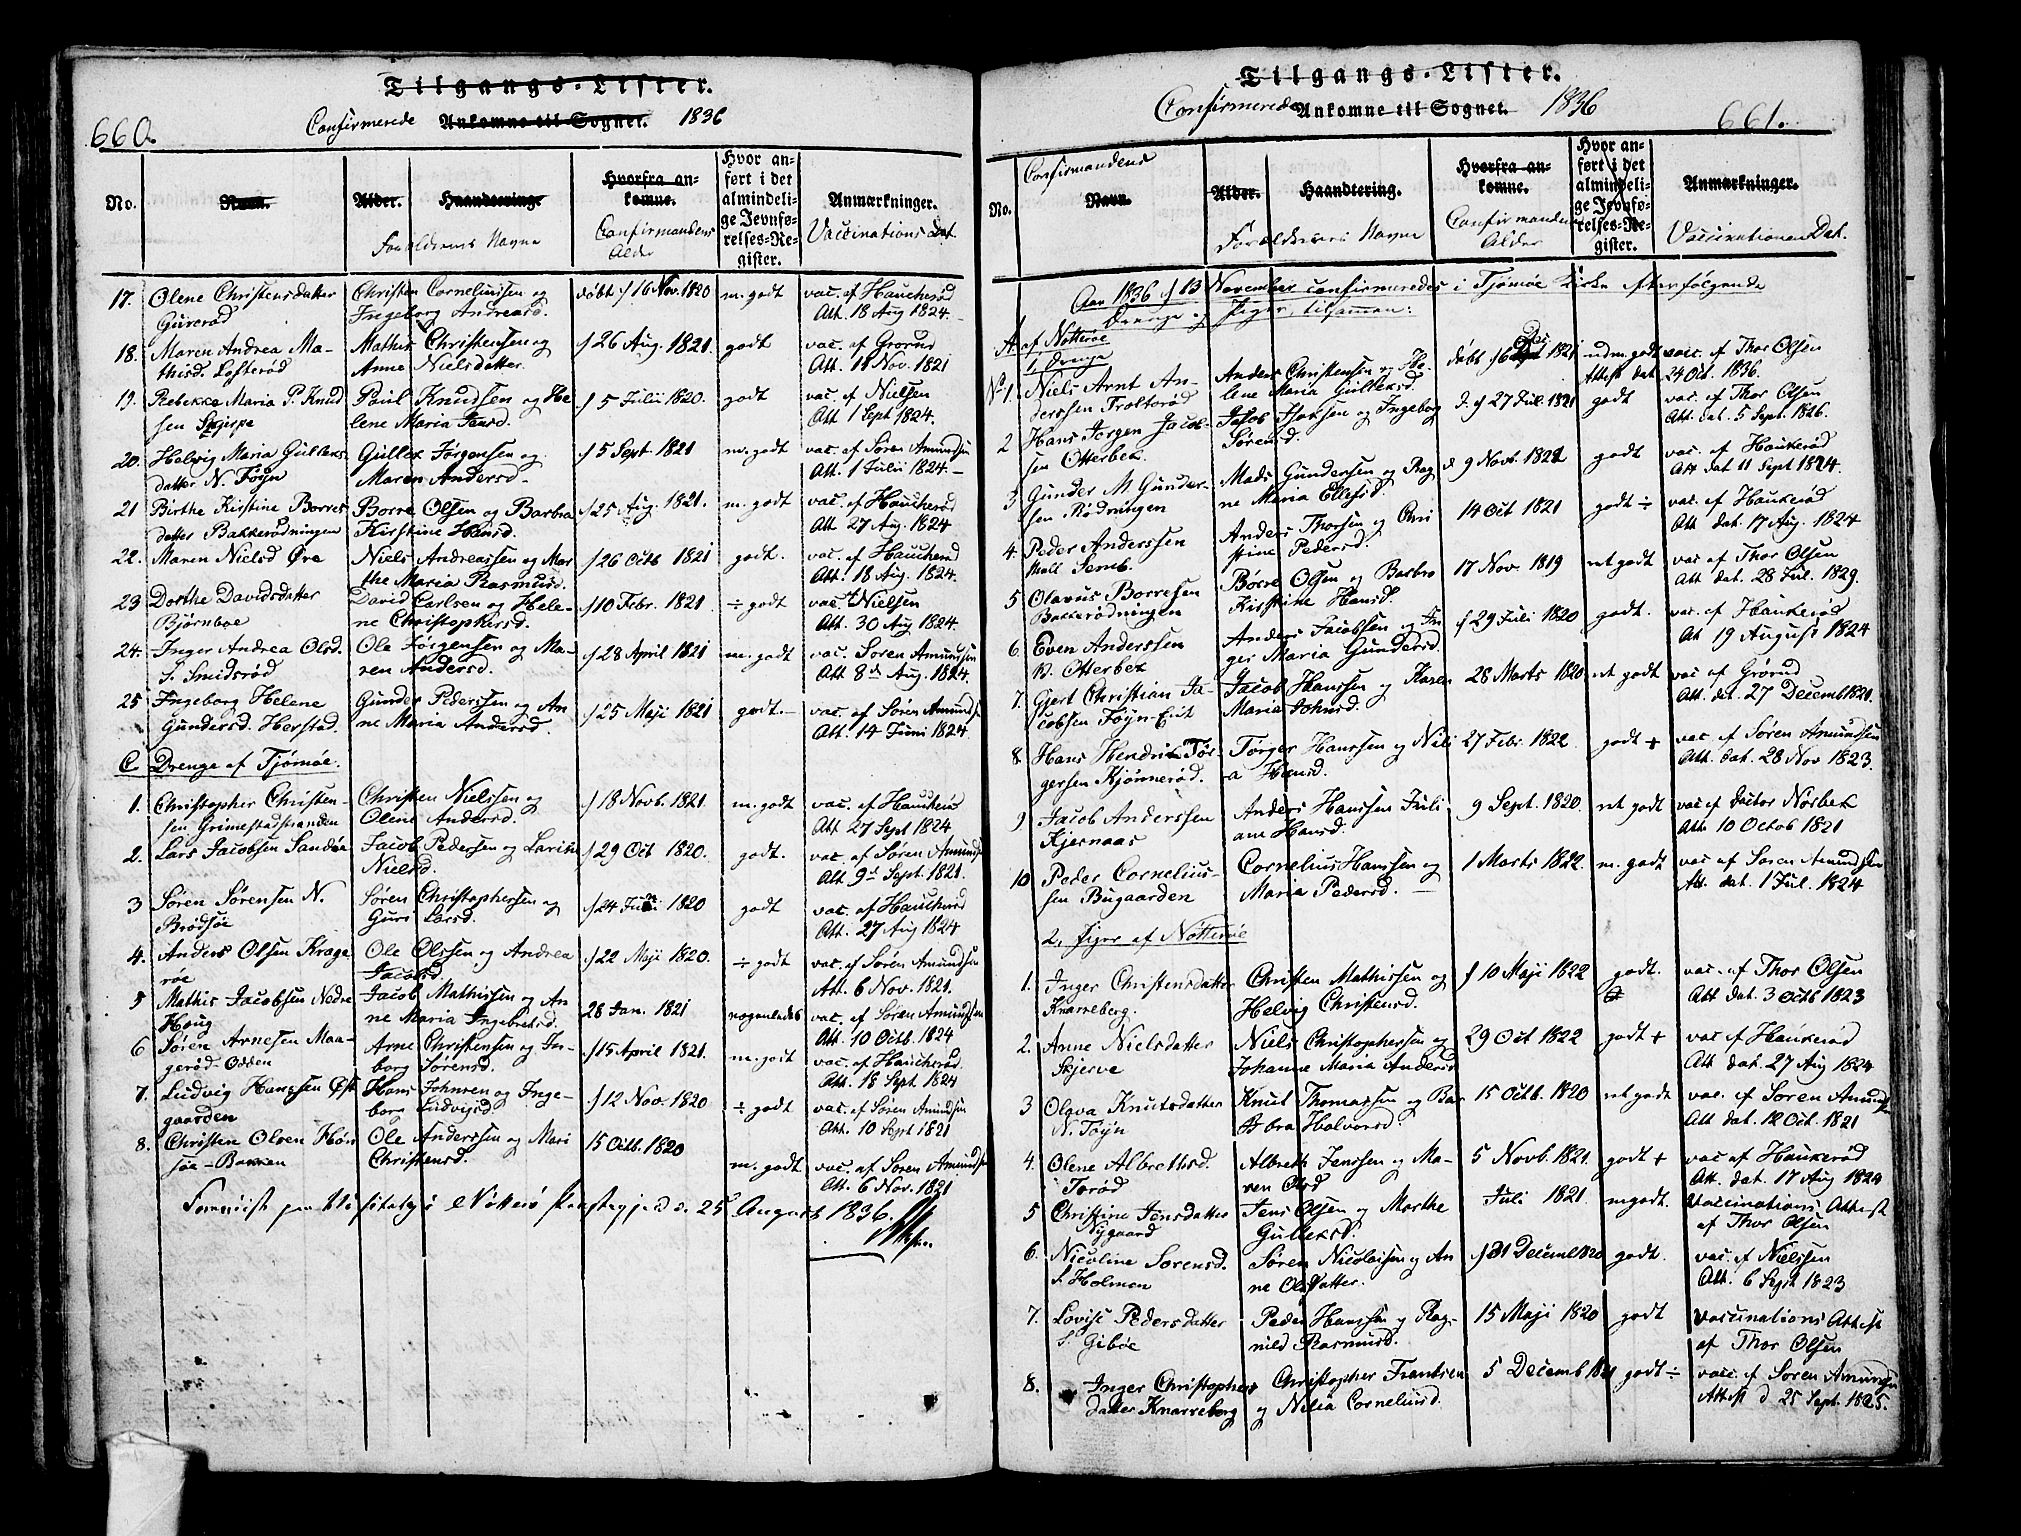 Tilgangs-Lister.
660. Confirmerede Ankomne til Sognet. 1836
No. Navn. Alder. Haandtering. Hvorfra ankomne. Hvor anført i det almindelige Jevnførelses-Register. Anmærkninger.
Forældrenes Navne Confirmandens Alder Vaccinations Dat.
17. Olene Christensdatter Christen Corneliussen og døbt d 16 Nov. 1820 m. godt vac. af Haucherød
Gurerød Ingeborg Andreasd. Att. 18 Aug 1824.
18. Maren Andrea Ma- Mathis Christensen og d 26 Aug. 1821. godt vac. af Grorud
thisd. Lofterød Anne Nielsdatter Att. 11 Nov. 1821
19. Rebekke Maria P. Knud Paul Knudsen og He d 5 Julii 1820. godt vac. af Nielsen
sen Skjerpe lene Maria Att. 1 Sept 1824.
20. Helvig Maria Gulleks Gullek Jørgensen og d 5 Sept. 1821 m. godt vac. af Søren Amundsen
datter N. Føyn Maren Andersd. Att. 1 Julii 1824.
21 Birthe Kirstine Borres Borre Olsen og Barbra d 25 Aug. 1821. m. godt vac. af Haucherød
datter Bakkerødningen Kirstine Hansd. Att. 27 Aug. 1824
22. Maren Nielsd Øre Niels Andreassen og Mar d 26 Octb 1821 godt. vac. af Haucherød
the Maria Rasmusd. Att. 18 Aug. 1824.
23 Dorthe Davidsdatter David Carlsen og Hele- d 10 Febr. 1821. ÷ godt vac. af Nielsen
Bjørnboe ne Christophersd. Att. 30 Aug 1824.
24. Inger Andrea Olsd. Ole Jørgensen og Ma- d 28 April 1821 m. godt vac. Søren Amundsen
S. Smidsrød ren Andersd. Att 8de Aug. 1824.
25 Ingeborg Helene Gunder Pedersen og An d 25 Maji 1821 godt. vac. af Søren Amundse
Gundersd. Herstad. ne Maria Andersd. Att. 14 Juni 1824.
C Drenge af Tjømøe.
1. Christopher Christen- Christen Nielssen og d 18 Novb. 1821. m. godt vac. af Haucherø
sen Grimestadstranden Olene Andersd. Att. 27 Sept 1824
2. Lars Jacobsen Sandøe Jacob Pedersen og Larine d 29 Oct 1820. godt. vac. af Søren Amunds
Nielsd. Att. 9d Sept. 1821.
3 Søren Sørensen N. Søren Christophersen og d 24 1820 godt vac. af Haucherød
Brødsøe Guri Larsd. Att. 27 Aug 1824
4. Anders Olsen Krage Ole Olssen og Andrea d 22 Maji 1820. ÷ godt vac. af Søren Amundsen
røe Jacobsd. Att. 6 Nov. 1821.
5 Mathis Jacobsen Nedre Jacob Mathissen og An 28 Jan. 1821 nogenledes vac. af Søren Amundsen
Houg ne Maria Ingebretsd. Att. 10 Octb. 1824
6 Søren Arnesen Maa- Arne Christensen og In- d 15 April 1821. m. godt vac. af Haucherød
gerød-Odden borg Sørensd. Att. 18 Sept. 1824
7. Ludvig Hanssen Øst Hans Johnsen og Inge- d 12 Nov. 1820 ÷ godt vac. af Søren Amundsen
gaarden borg Ludvigsd. Att. 10 Sept 1821
8. Christen Olsen Høn Ole Anderssen og Mari 15 Octb. 1820 m. godt vac. af Søren Amundse
søe-Bakken Christensd. Att. 6 Nov. 1821
Nøtterø d. 25 August 1836.
Tilgangs-Lister.
Confirmerede Ankomne til Sognet. 1836 661.
No. Confirmandens Navn. Alder. Haandtering. Hvorfra ankomne. Hvor anført i det almindelige Jevnførelses-Register. Anmærkninger.
Forældrenes Navne Confirmandens Alder Vaccinationens Dat.
Aar 1836 d 13 November confirmeredes i Tjømøe Kirke efterfølgende
Drenge og Piger, tilsammen:
A. af Nøtterøe
1, Drenge
No 1. Niels Arnt An- Anders Christensen og He- døbt d 6 1821 udm. godt vac. af Thor Olsen
derssen Trolterød lene Maria Gulleksd. Attest dat. 24 Oct. 1836.
2 Hans Jørgen Jacob- Jacob Isaksen og Ingeborg d. d 27 Jul. 1821 godt vac. af Thor Olsen
sen Otterbek Sørensd. Att. dat. 5 Sept. 1826.
3 Gunder M. Gunder- Mads Gundersen og Rag d 9 Novb. 1821 godt vac. af Haukerød
sen Rødningen ne Maria Ellefsd. Att dat 11 Sept 1824.
4. Peder Anderssen Anders Thorsen og Chri 14 Oct 1821 godt ÷ vac. af Haukerød
Mell. Semb. stine Pedersd. Att. dat. 17 Aug. 1824
5 Olavus Borresen Børre Olsen og Barbro 17 Nov. 1819 nt godt vac. af Thor Olsen
Bakkerødningen Kirstine Hansd. Att. dat. 28 Jul. 1829.
6. Even Anderssen Anders Jacobsen og In d 29 Juli 1820 godt. vac. af Haukerød
V. Otterbek ger Maria Gundersd. Att 19 August 1824
7. Gjert Christian Ja- Jacob Hanssen og Karen 28 Marts 1820 nt godt vac. af Grorud
cobsen Føyn-Eiet Maria Johnsd. Att. dat. 27 Decemb 1821.
8 Hans Hendrik Tør- Tørger Hanssen og Nili 27 Febr. 1822. godt + vac. af Søren Amundsen
gersen Kjønnerød. a Hansd. Att. dat. 28 Nov 1823.
9 Jacob Anderssen Anders Hanssen Juli- 9 Sept. 1820. nt godt vac af Doctor Norbek
Kjernaas ane Hansd. Att. 10 Octob 1821
10 Peder Cornelius- Cornelius Hanssen og 1 Marts 1822. m. godt vac. af Søren Amundsen
sen Bugaarden Maria Pedersd. Att. dat. 1 Jul. 1824
2. Piger af Nøtterøe
1. Inger Christensdatter Christen Mathissen og d 10 Maji 1822 godt. vac. af Thor Olsen
Knarreberg. Helvig Christensd. Att dat. 3 Octb 1823
2. Anne Nielsdatter Niels Christophersen og 29 Oct 1822 godt + vac af Haukerød
Skjerve Johanne Maria Andersd Att. dat. 27 Aug 1824
3 Olava Knutsdatter Knut Thomassen og Bar 15 Octb. 1820 nt godt vac. af Søren Amunds
N. Føyn bra Halvorsd. Att dat. 12 Oct. 1821
4. Olene Albrethsd. Albreth Jenssen og Ma- 5 Novb. 1821. godt + vac. af Haukerød
Torød ren Olsd Att. dat. 17 Aug 1824
5 Christine Jensdatter Jens Olsen og Marthe Juli 1821 m godt. Vaccinations Attest
Nygaard Gulleksd. af Thor Olsen
6. Nicoline Sørensd. Søren Nicolaisen og An d 31 Decemb 1820 godt. vac. af Nielssen
S. Holmen ne Olsdatter. Att. 6 Sept 1823
7. Lovise Pedersdatter Peder Hanssen og Rag- 15 Maji 1820 godt Vaccinations Attest
S. Gibøe nild Rasmusd. af Thor Olsen
8. Inger Christophers Christopher Frantsen 5 Decemb godt ÷ vac. af Søren Amundsen
datter Knarreberg og Nilia Corneliusd. Attest d 25 Sept. 1825.